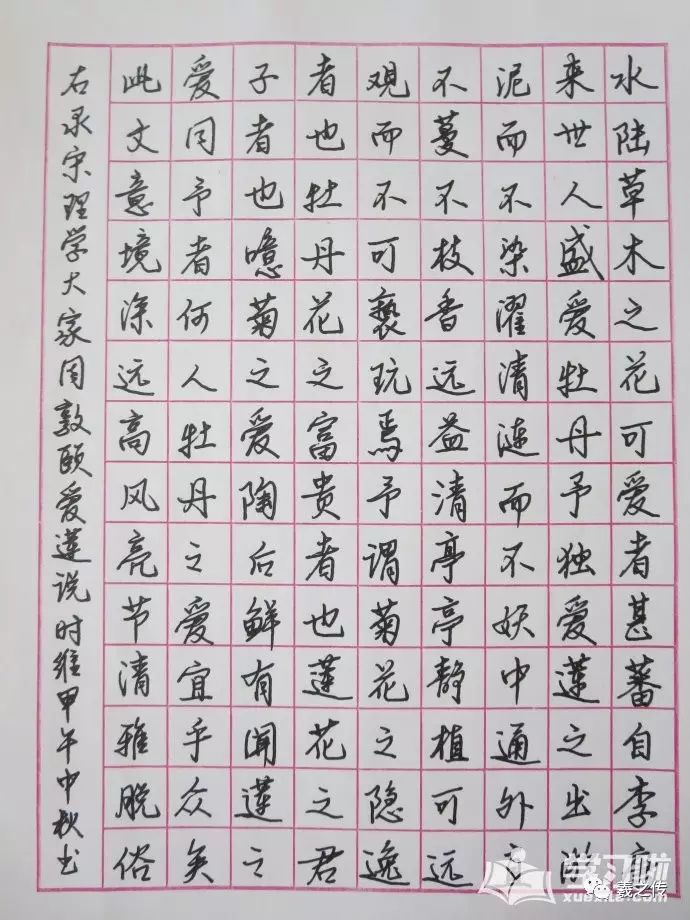 水陆草木之花可爱者甚蕃自李唐
来世人盛爱牡丹予独爱莲之出淤
泥而不染濯清涟而不妖中通外直
不蔓不枝香远益清亭亭静植可远
观而不可亵玩焉予谓菊花之隐逸
者也牡丹花之富贵者也莲花之君
子者也噫菊之爱陶后鲜有闻莲之
爱同予者何人牡丹之爱宜乎众矣
此文意境深远高风亮节清雅脱俗
右录宋理学大家周敦颐爱莲说时维甲午中秋书
学习啦
羲之传